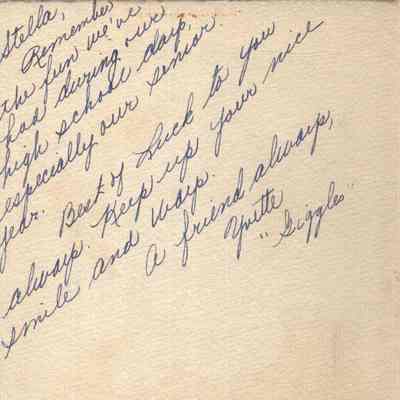 Stella,
Remember
the fun we've
had during our
high school days,
especially our senior
year.
Best of Luck to you
always. Keep up your nice
smile and ways.
A friend always,
Yvette
"Giggles"